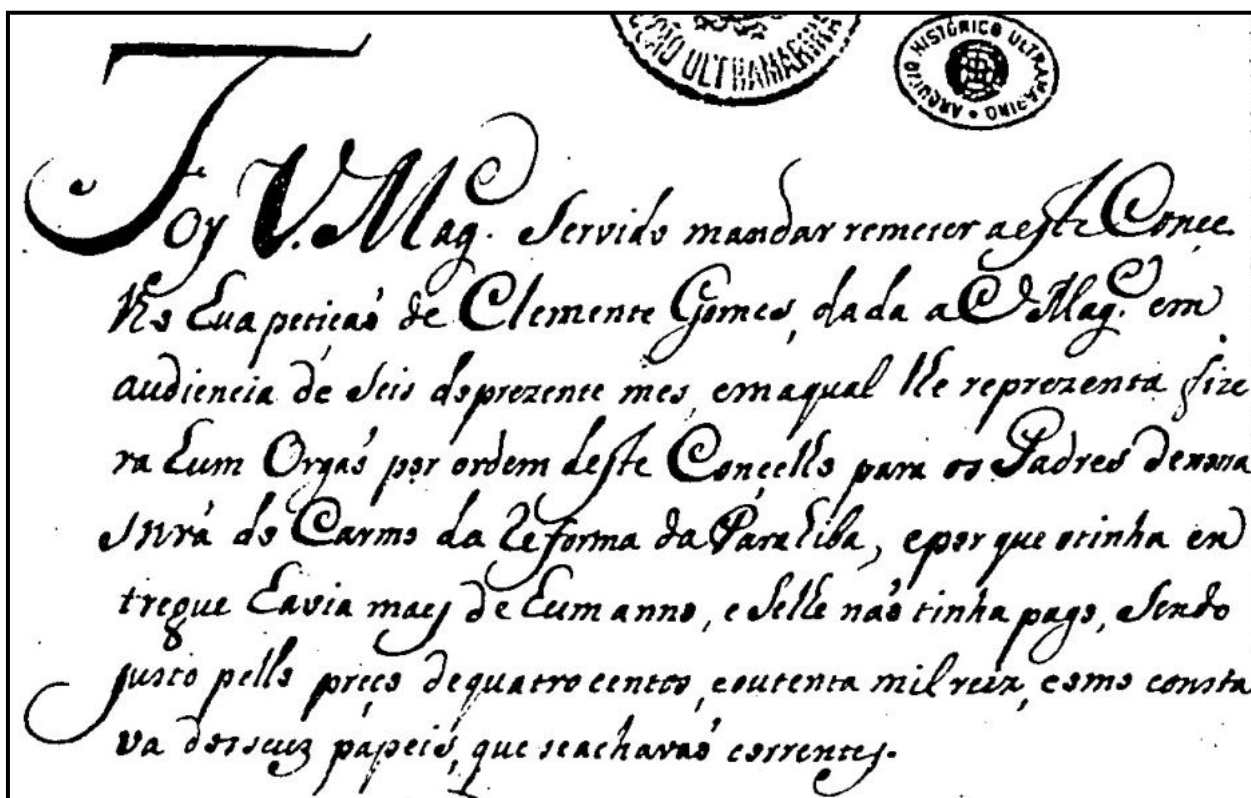 ÇÃO ULTRAMARINA
ARQUIVO HISTÓRICO ULTRAMARINO
Foy V. Mag.e servido mandar remeter a este Conce-
lho hua petição de Clemente Gomes, dada a V Mag.e em
audiencia de seis do prezente mes, em a qual lhe reprezenta fize
ra hum Orgaõ por ordem deste Concelho para os Padres de nossa
Snr̃a do Carmo da Reforma da Parahiba, e por que o tinha en
tregue havia mais de hum anno, e se lhe naõ tinha pago, sendo
justo pello preço de quatro centos, e outenta mil reiz, como consta
va dos seuz papeis, que se achavaõ correntes.